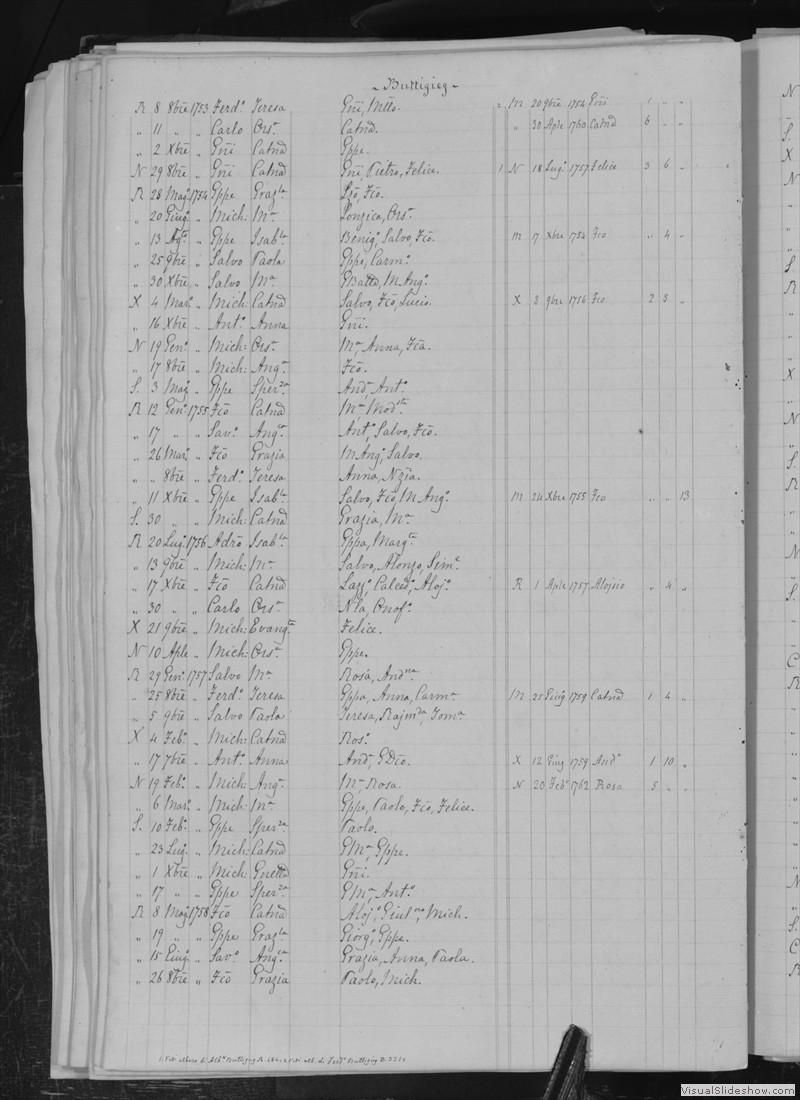 ~ Buttigieg ~
R 8 8bre 1753 Ferdo Teresa Gni, Mtto. 2 M 20 9bre 1754 Gni 1 „ „
„ 11 „ „ Carlo Orsa Catna. „ 30 Aple 1760 Catna 6 „ „
„ 2 Xbre „ Gni Catna Gppe.
N 29 8bre „ Gni Catna Gni, Pietro, Felice. 1 N 18 Lugo 1757 Felice 3 6 „
R 28 Mago 1754 Gppe Grazla Fco.
„ 20 Giugo „ Mich: Ma Orsa.
„ 13 Agto „ Gppe Isabla Benigo, Salvo, Fco. M 17 Xbre 1754 Fco „ 4 „
„ 25 9bre „ Salvo Paola Gppe, Carmo.
„ 30 Xbre „ Salvo Ma GBatta, M Anga.
X 4 Maro „ Mich: Catna Salvo, Fco, Lucio. X 2 9bre 1756 Fco 2 8 „
„ 16 Xbre „ Anto Anna Gni.
N 19 Geno „ Mich: Orsa Ma, Anna, Fca.
„ 17 8bre „ Mich: Anga Fco.
S. 3 Mago „ Gppe Sperza Anda, Anto.
R 12 Geno 1755 Fco Catna Ma, Modta.
„ 17 „ „ Savo Angca Anto, Salvo, Fco.
„ 26 Maro „ Fco Grazia M Anga, Salvo.
„ „ 8bre „ Ferdo Teresa Anna, Nzia.
„ 11 Xbre „ Gppe Isabla Salvo, Fco, M Anga. M 24 Xbre 1755 Fco „ „ 13
S. 30 „ „ Mich: Catna Grazia, Ma.
R 20 Lugo 1756 Adreo Isabla Gppa, Margta.
„ 13 9bre „ Mich: Ma Salvo, Alonzo, Sime.
„ 17 Xbre „ Fco Catna Lazo, Calcedo, Alojo. R 1 Aple 1757 Alojsio „ 4 „
„ 30 „ „ Carlo Orsa Nla, Onofo.
X 21 9bre „ Mich: Evangta Felice.
N 10 Aple „ Mich: Orsa Gppe.
R 29 Geno 1757 Salvo Ma Rosa, Andna.
„ 25 8bre „ Ferdo Teresa Gppa, Anna, Carma. M 25 Giug 1759 Catna 1 4 „
„ 5 9bre „ Salvo Paola Teresa, Rajmda, Toma.
X 4 Febo „ Mich: Catna Roso.
„ 17 7bre „ Anto Anna Anda, GDco. X 12 Giug 1759 Anda 1 10 „
N 19 Febo „ Mich: Anga Ma, Rosa. N 20 Febo 1762 Rosa 5 „ „
„ 6 Maro „ Mich: Ma Gppe, Paolo, Fco, Felice.
S. 10 Febo „ Gppe Sperza Paolo.
„ 23 Lugo „ Mich: Catna GMa, Gppe.
„ 1 Xbre „ Mich: Guetta Gni.
„ 17 „ „ Gppe Sperza GMa, Anto.
R 8 Mago 1758 Fco Catna Alojo, Giulno, Mich.
„ 19 „ „ Gppe Grazla Giorgo, Gppe.
„ 15 Giugo „ Savo Angca Grazia, Anna, Paola.
„ 26 8bre „ Fco Grazia Paolo, Mich.
VisualSlideshow.com